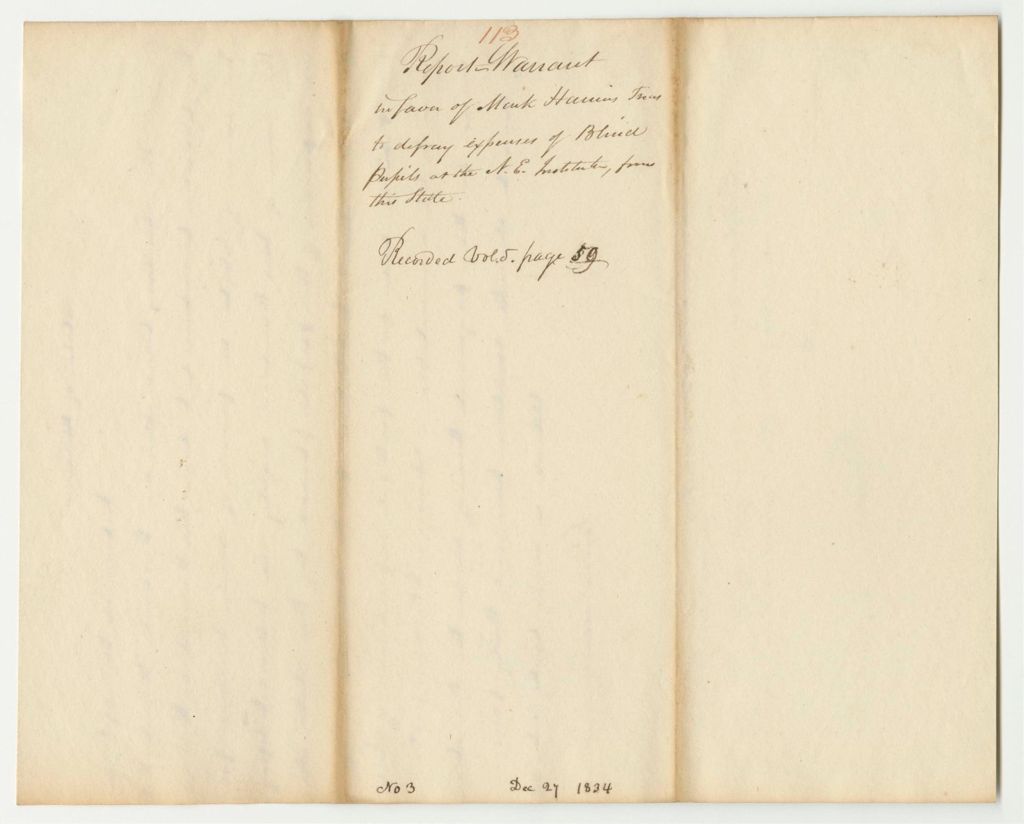 113
Report - Warrant
in favor of Mark Harris Treas
to defray expenses of Blind
Pupils at the N. E. Institute, from
this State.
Recorded Vol. 5. page 59
No 3 Dec 27 1834